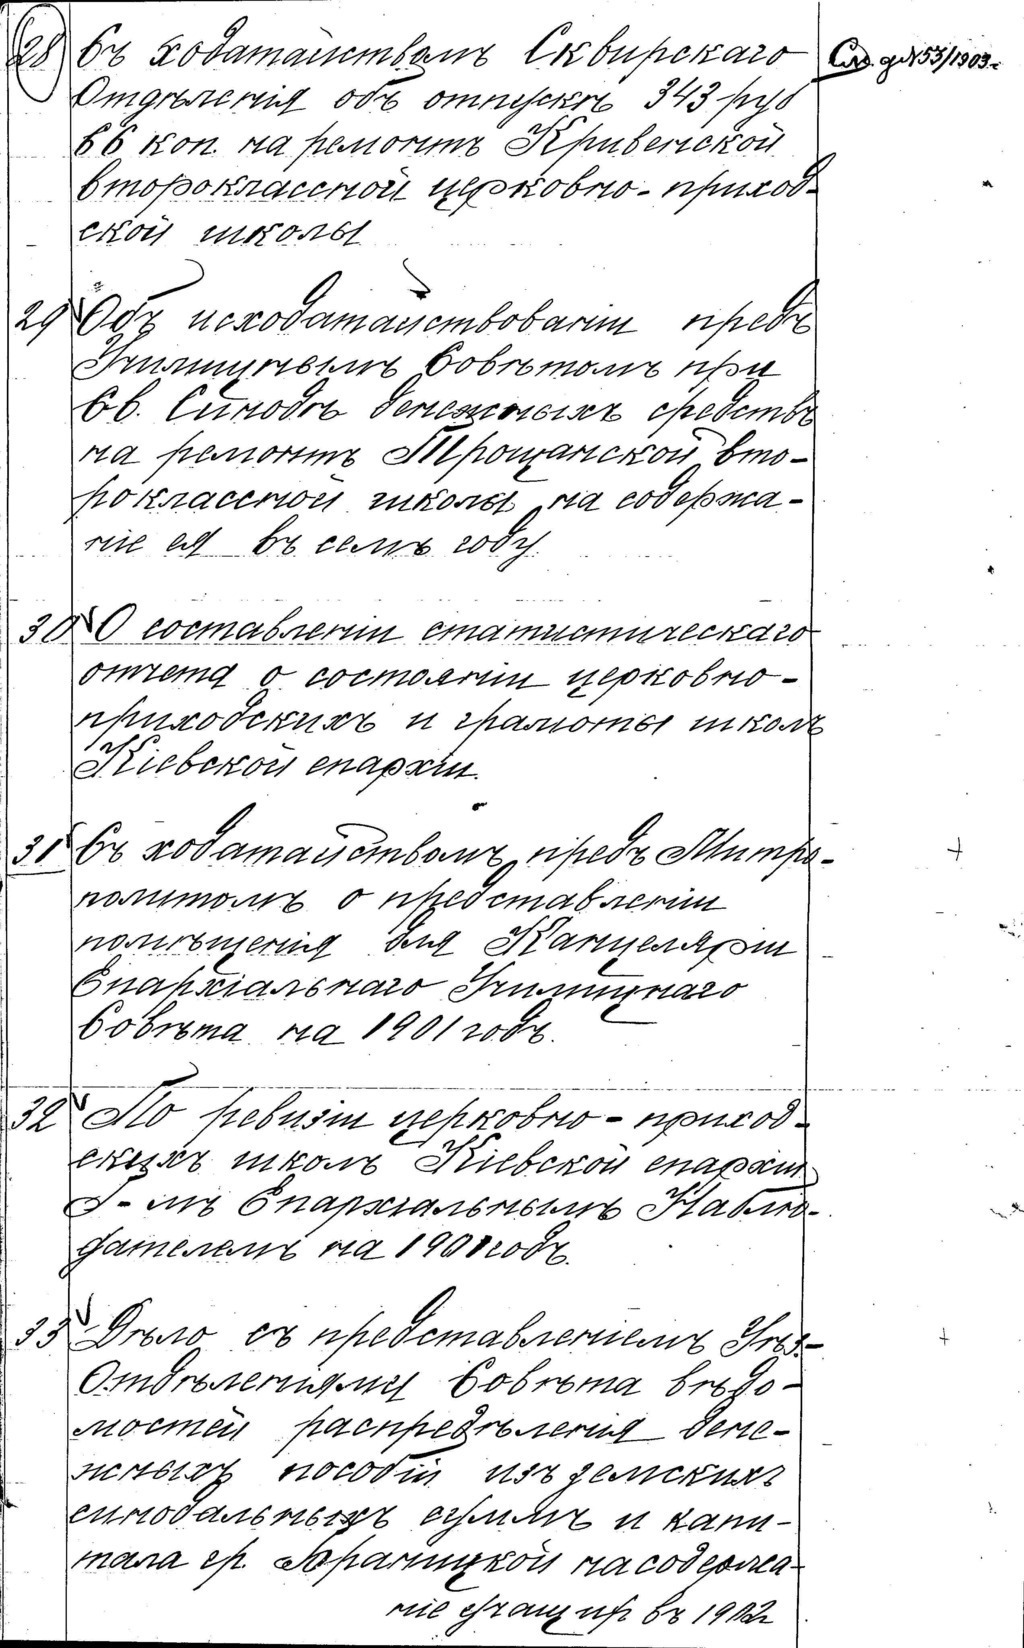 28 Съ ходатайствомъ Сквирскаго
Отдѣленія объ отпускѣ 343 руб
66 коп. на ремонтъ Кривенской
второклассной церковно-приход-
ской школы
См. д. №53/1903 г.
29 Объ исходатайствованіи предъ
Училищнымъ Совѣтомъ при
Св. Синодѣ денежныхъ средствъ
на ремонтъ Трощанской вто-
роклассной школы на содержа-
ніе ея въ семъ году.
30 О составленіи статистическаго
отчета о состояніи церковно-
приходскихъ и грамоты школъ
Кіевской епархіи.
31 Съ ходатайствомъ предъ Митро-
политомъ о представленіи
помѣщенія для Канцеляріи
Епархіальнаго Училищнаго
Совѣта на 1901 годъ.
32 По ревизіи церковно-приход-
скихъ школъ Кіевской епархіи
Г-мъ Епархіальнымъ Наблю-
дателемъ на 1901 годъ.
33 Дѣло съ представленіемъ Уѣз.
Отдѣленіями Совѣта вѣдо-
мостей распредѣленія дене-
жныхъ пособій изъ земскихъ
синодальныхъ суммъ и капи-
тала гр. Браницкой на содержа-
ніе учащихъ въ 1902 г